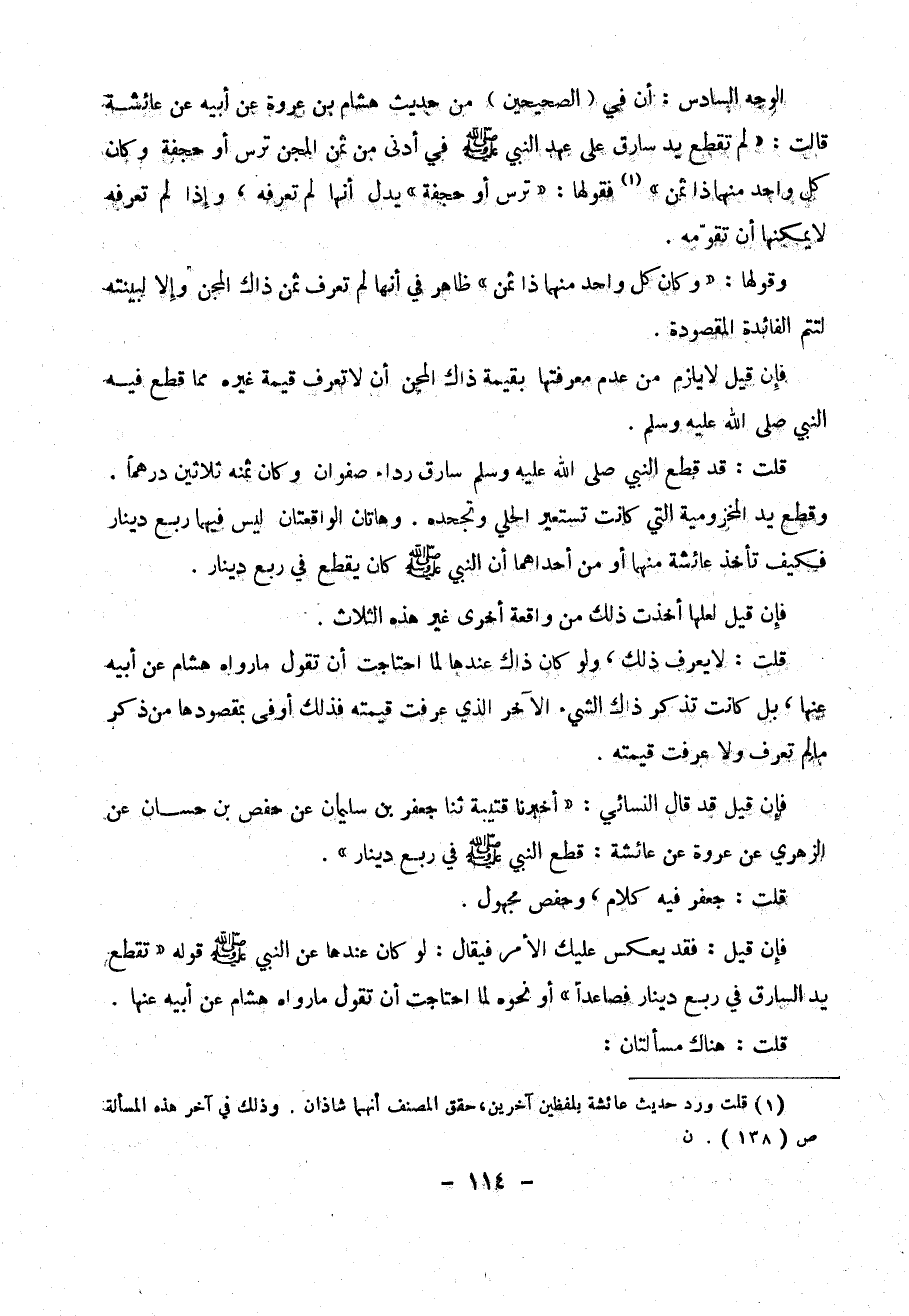 الوجه السادس : أن في ( الصحيحين ) من حديث هشام بن عروة عن أبيه عن عائشة
قالت : « لم تقطع يد سارق على عهد النبي ﷺ في أدنى من ثمن المجن ترس أو حجفة وكان
كل واحد منهما ذا ثمن » (١) فقولها : « ترس أو حجفة » يدل أنها لم تعرفه ، وإذا لم تعرفه
لا يمكنها أن تقوّمه .
وقولها : « وكان كل واحد منهما ذا ثمن » ظاهر في أنها لم تعرف ثمن ذاك المجن وإلا لبينته
لتتم الفائدة المقصودة .
فإن قيل لا يلزم من عدم معرفتها بقيمة ذاك المجن أن لا تعرف قيمة غيره مما قطع فيه
النبي صلى الله عليه وسلم .
قلت : قد قطع النبي صلى الله عليه وسلم سارق رداء صفوان وكان ثمنه ثلاثين درهماً .
وقطع يد المخزومية التي كانت تستعير الحلي وتجحده . وهاتان الواقعتان ليس فيهما ربع دينار
فكيف تأخذ عائشة منهما أو من أحداهما أن النبي ﷺ كان يقطع في ربع دينار .
فإن قيل لعلها أخذت ذلك من واقعة أخرى غير هذه الثلاث .
قلت : لا يعرف ذلك ، ولو كان ذاك عندها لما احتاجت أن تقول ما رواه هشام عن أبيه
عنها ، بل كانت تذكر ذاك الشيء الآخر الذي عرفت قيمته فذلك أوفى بمقصودها من ذكر
مالم تعرف ولا عرفت قيمته .
فإن قيل قد قال النسائي : « أخبرنا قتيبة ثنا جعفر بن سليمان عن حفص بن حسان عن
الزهري عن عروة عن عائشة : قطع النبي ﷺ في ربع دينار » .
قلت : جعفر فيه كلام ، وحفص مجهول .
فإن قيل : فقد يعكس عليك الأمر فيقال : لو كان عندها عن النبي ﷺ قوله « تقطع
يد السارق في ربع دينار فصاعداً » أو نحوه لما احتاجت أن تقول ما رواه هشام عن أبيه عنها .
قلت : هناك مسألتان :
(١) قلت ورد حديث عائشة بلفظين آخرين، حقق المصنف أنهما شاذان . وذلك في آخر هذه المسألة
ص ( ١٣٨ ) . ن
– ١١٤ –